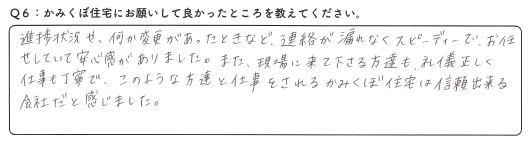 Q6：かみくぼ住宅にお願いして良かったところを教えてください。
進捗状況や、何か変更があったときなど、連絡が漏れなくスピーディーで、お任
せしていて安心感がありました。また、現場に来て下さる方達も、礼儀正しく
仕事も丁寧で、このような方達と仕事をされるかみくぼ住宅は信頼出来る
会社だと感じました。